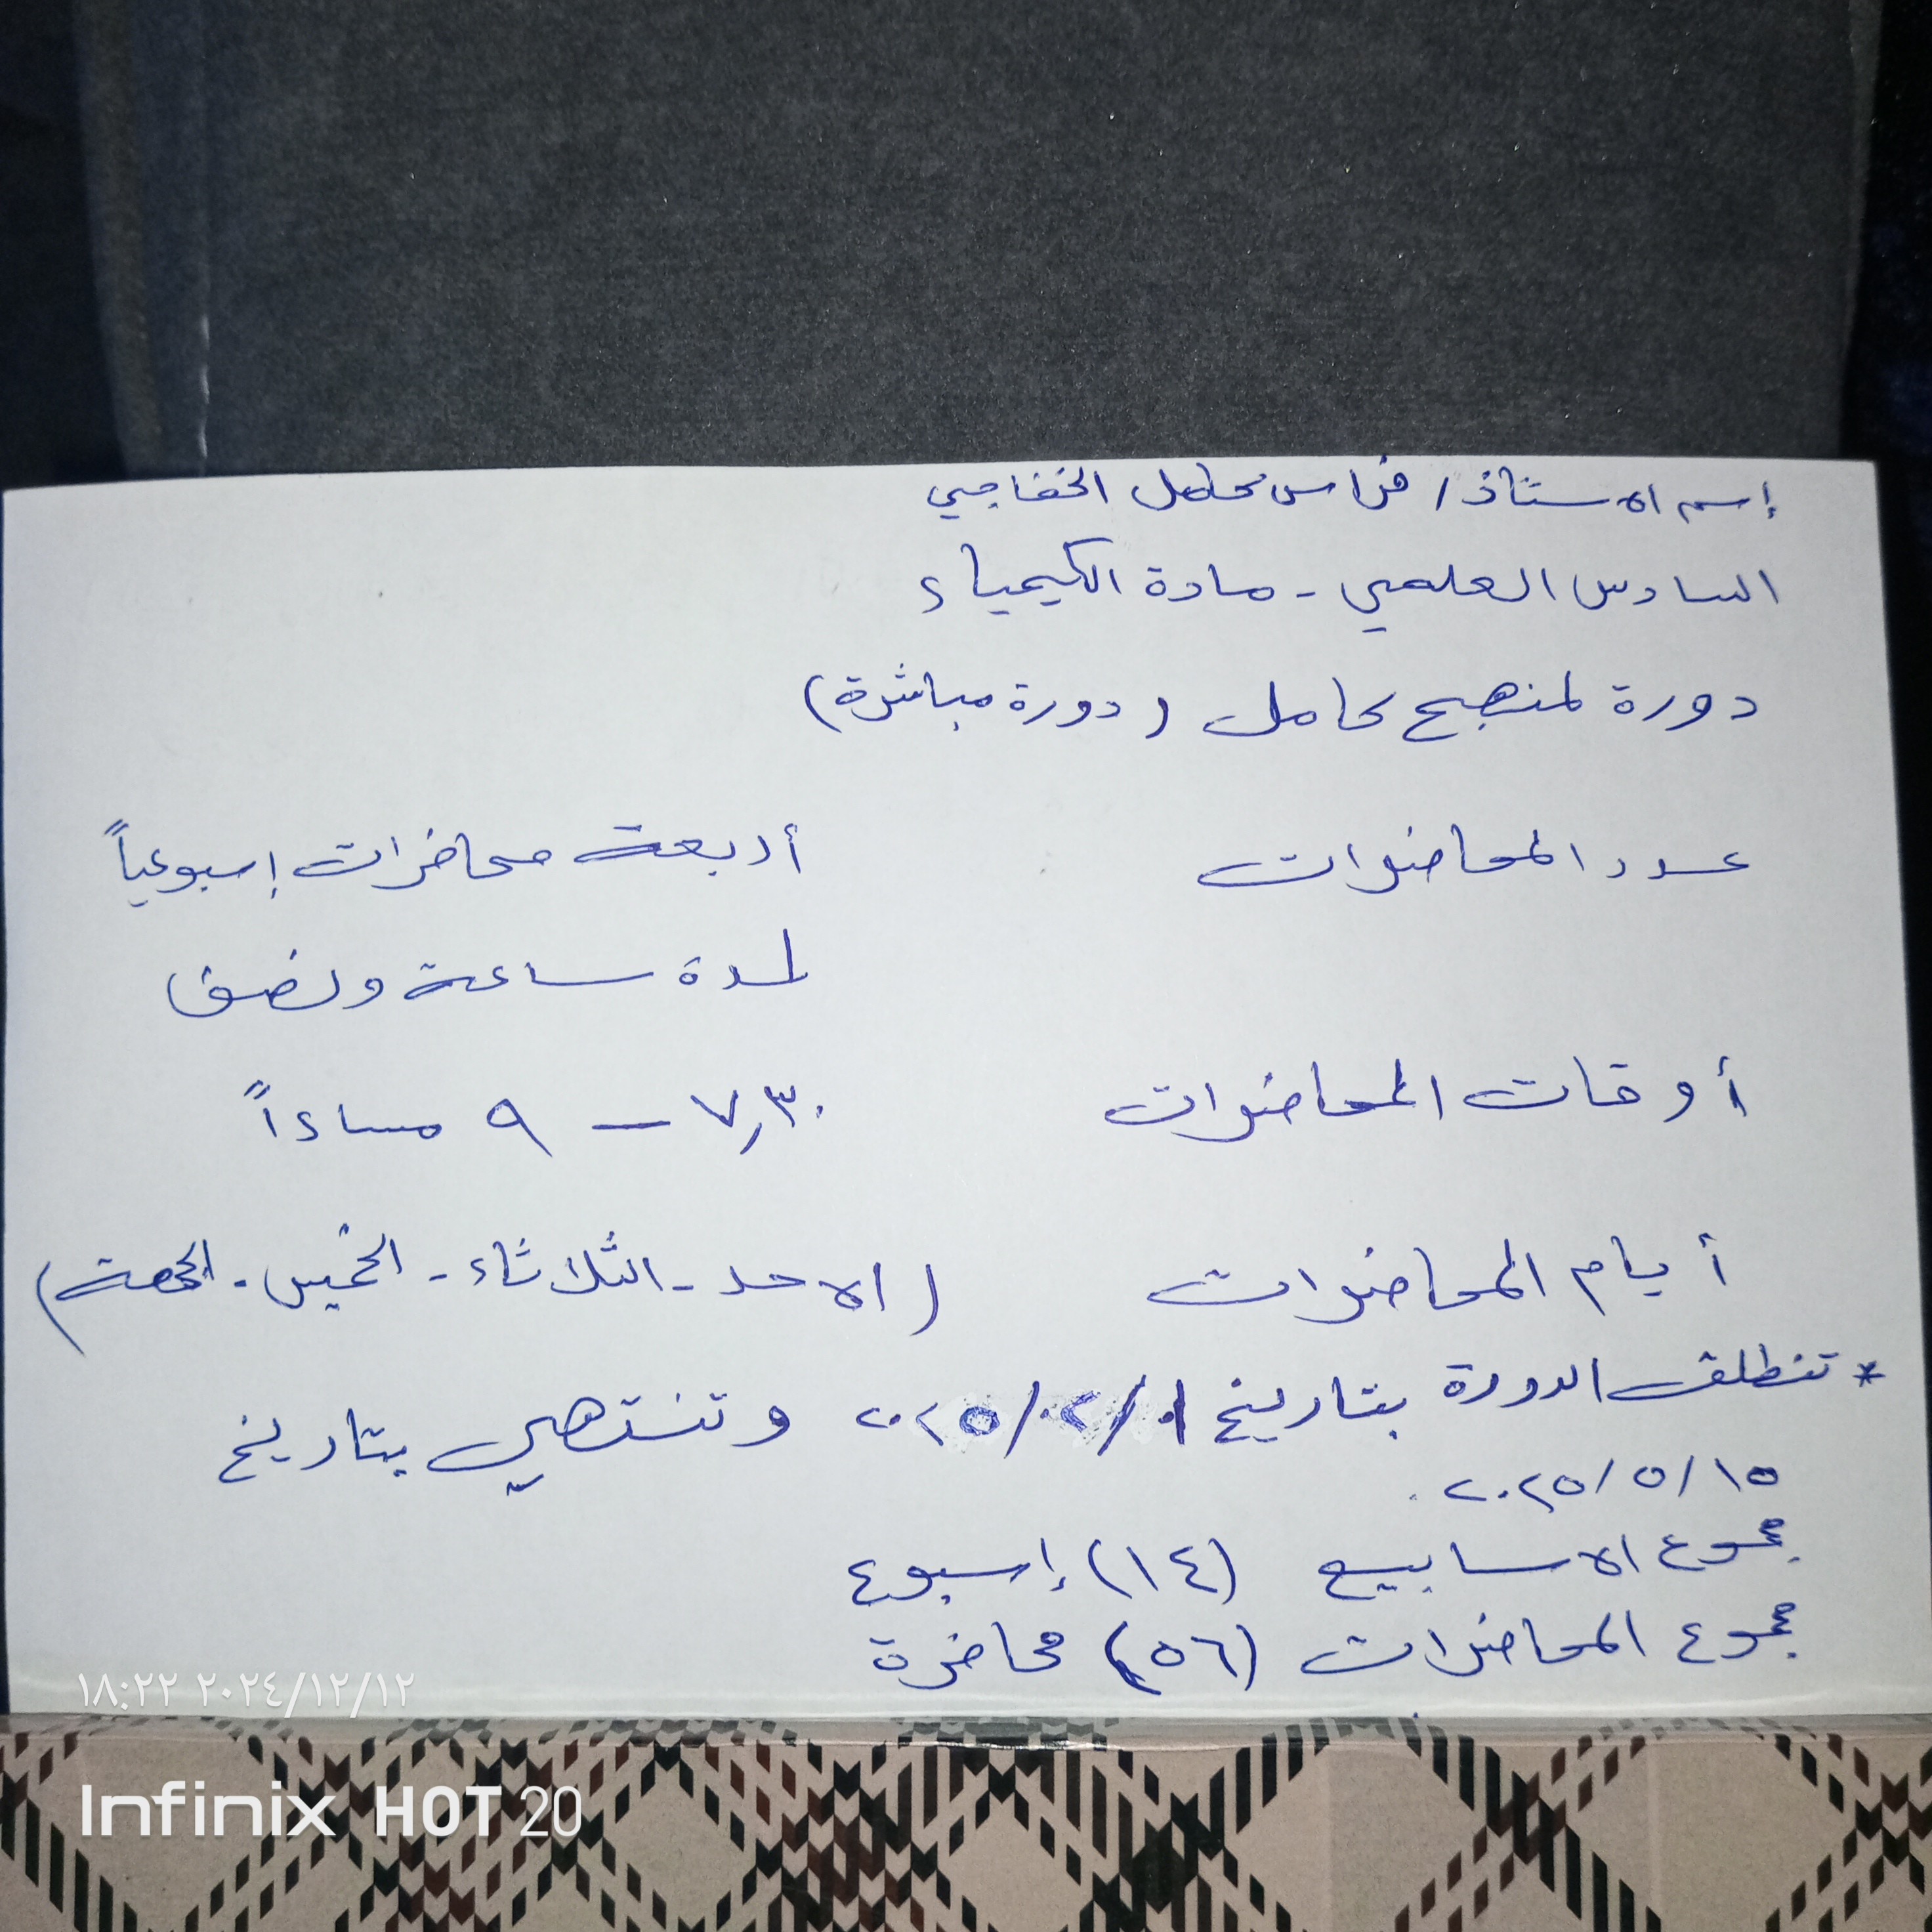 إسم الاستاذ / فراس كامل الخفاجي
السادس العلمي - مادة الكيمياء
دورة لمنهج كامل (دورة مباشرة)
عدد المحاضرات أربعة محاضرات إسبوعياً
لمدة ساعة ونصف
أوقات المحاضرات ٧,٣٠ — ٩ مساءاً
أيام المحاضرات (الاحد - الثلاثاء - الخميس - الجمعة)
* تنطلق الدورة بتاريخ ٠١/٠٢/٢٠٢٥ وتنتهي بتاريخ
١٥/٥/٢٠٢٥.
مجموع الاسابيع (١٤) إسبوع
مجموع المحاضرات (٥٦) محاضرة
١٨:٢٢ ٢٠٢٤/١٢/١٢
Infinix HOT 20